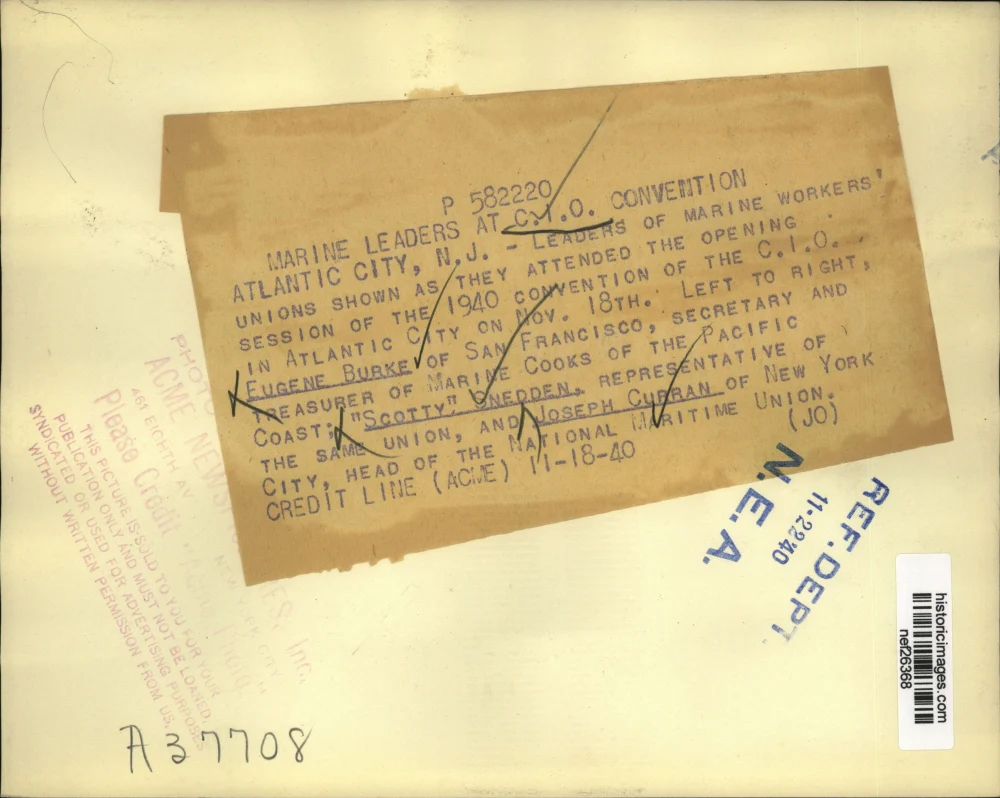 P 582220
MARINE LEADERS AT C.I.O. CONVENTION
ATLANTIC CITY, N.J. - LEADERS OF MARINE WORKERS'
UNIONS SHOWN AS THEY ATTENDED THE OPENING
SESSION OF THE 1940 CONVENTION OF THE C.I.O.
IN ATLANTIC CITY ON NOV. 18TH. LEFT TO RIGHT,
EUGENE BURKE OF SAN FRANCISCO, SECRETARY AND
TREASURER OF MARINE COOKS OF THE PACIFIC
COAST; "SCOTTY" SNEDDEN, REPRESENTATIVE OF
THE SAME UNION, AND JOSEPH CURRAN OF NEW YORK
CITY, HEAD OF THE NATIONAL MARITIME UNION.
CREDIT LINE (ACME) 11-18-40 (JO)
ACME NEWS
461 EIGHTH AV
Please Credit
THIS PICTURE IS SOLD TO YOU FOR YOUR
PUBLICATION ONLY AND MUST NOT BE LOANED,
SYNDICATED OR USED FOR ADVERTISING PURPOSES
WITHOUT WRITTEN PERMISSION FROM US.
REF. DEPT
11-22 40
N.E.A.
A37708
historicimages.com
nef26368